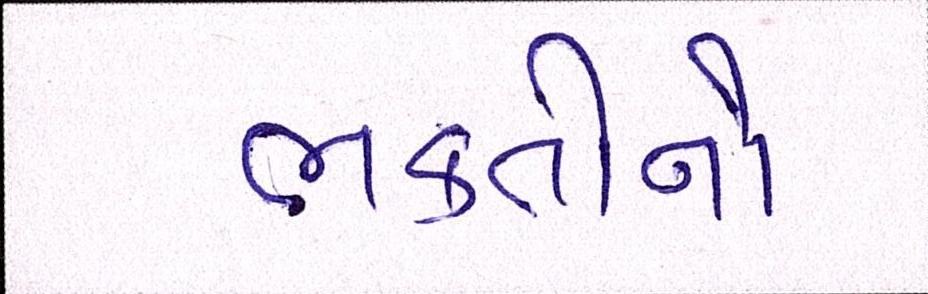 ભકતીનો